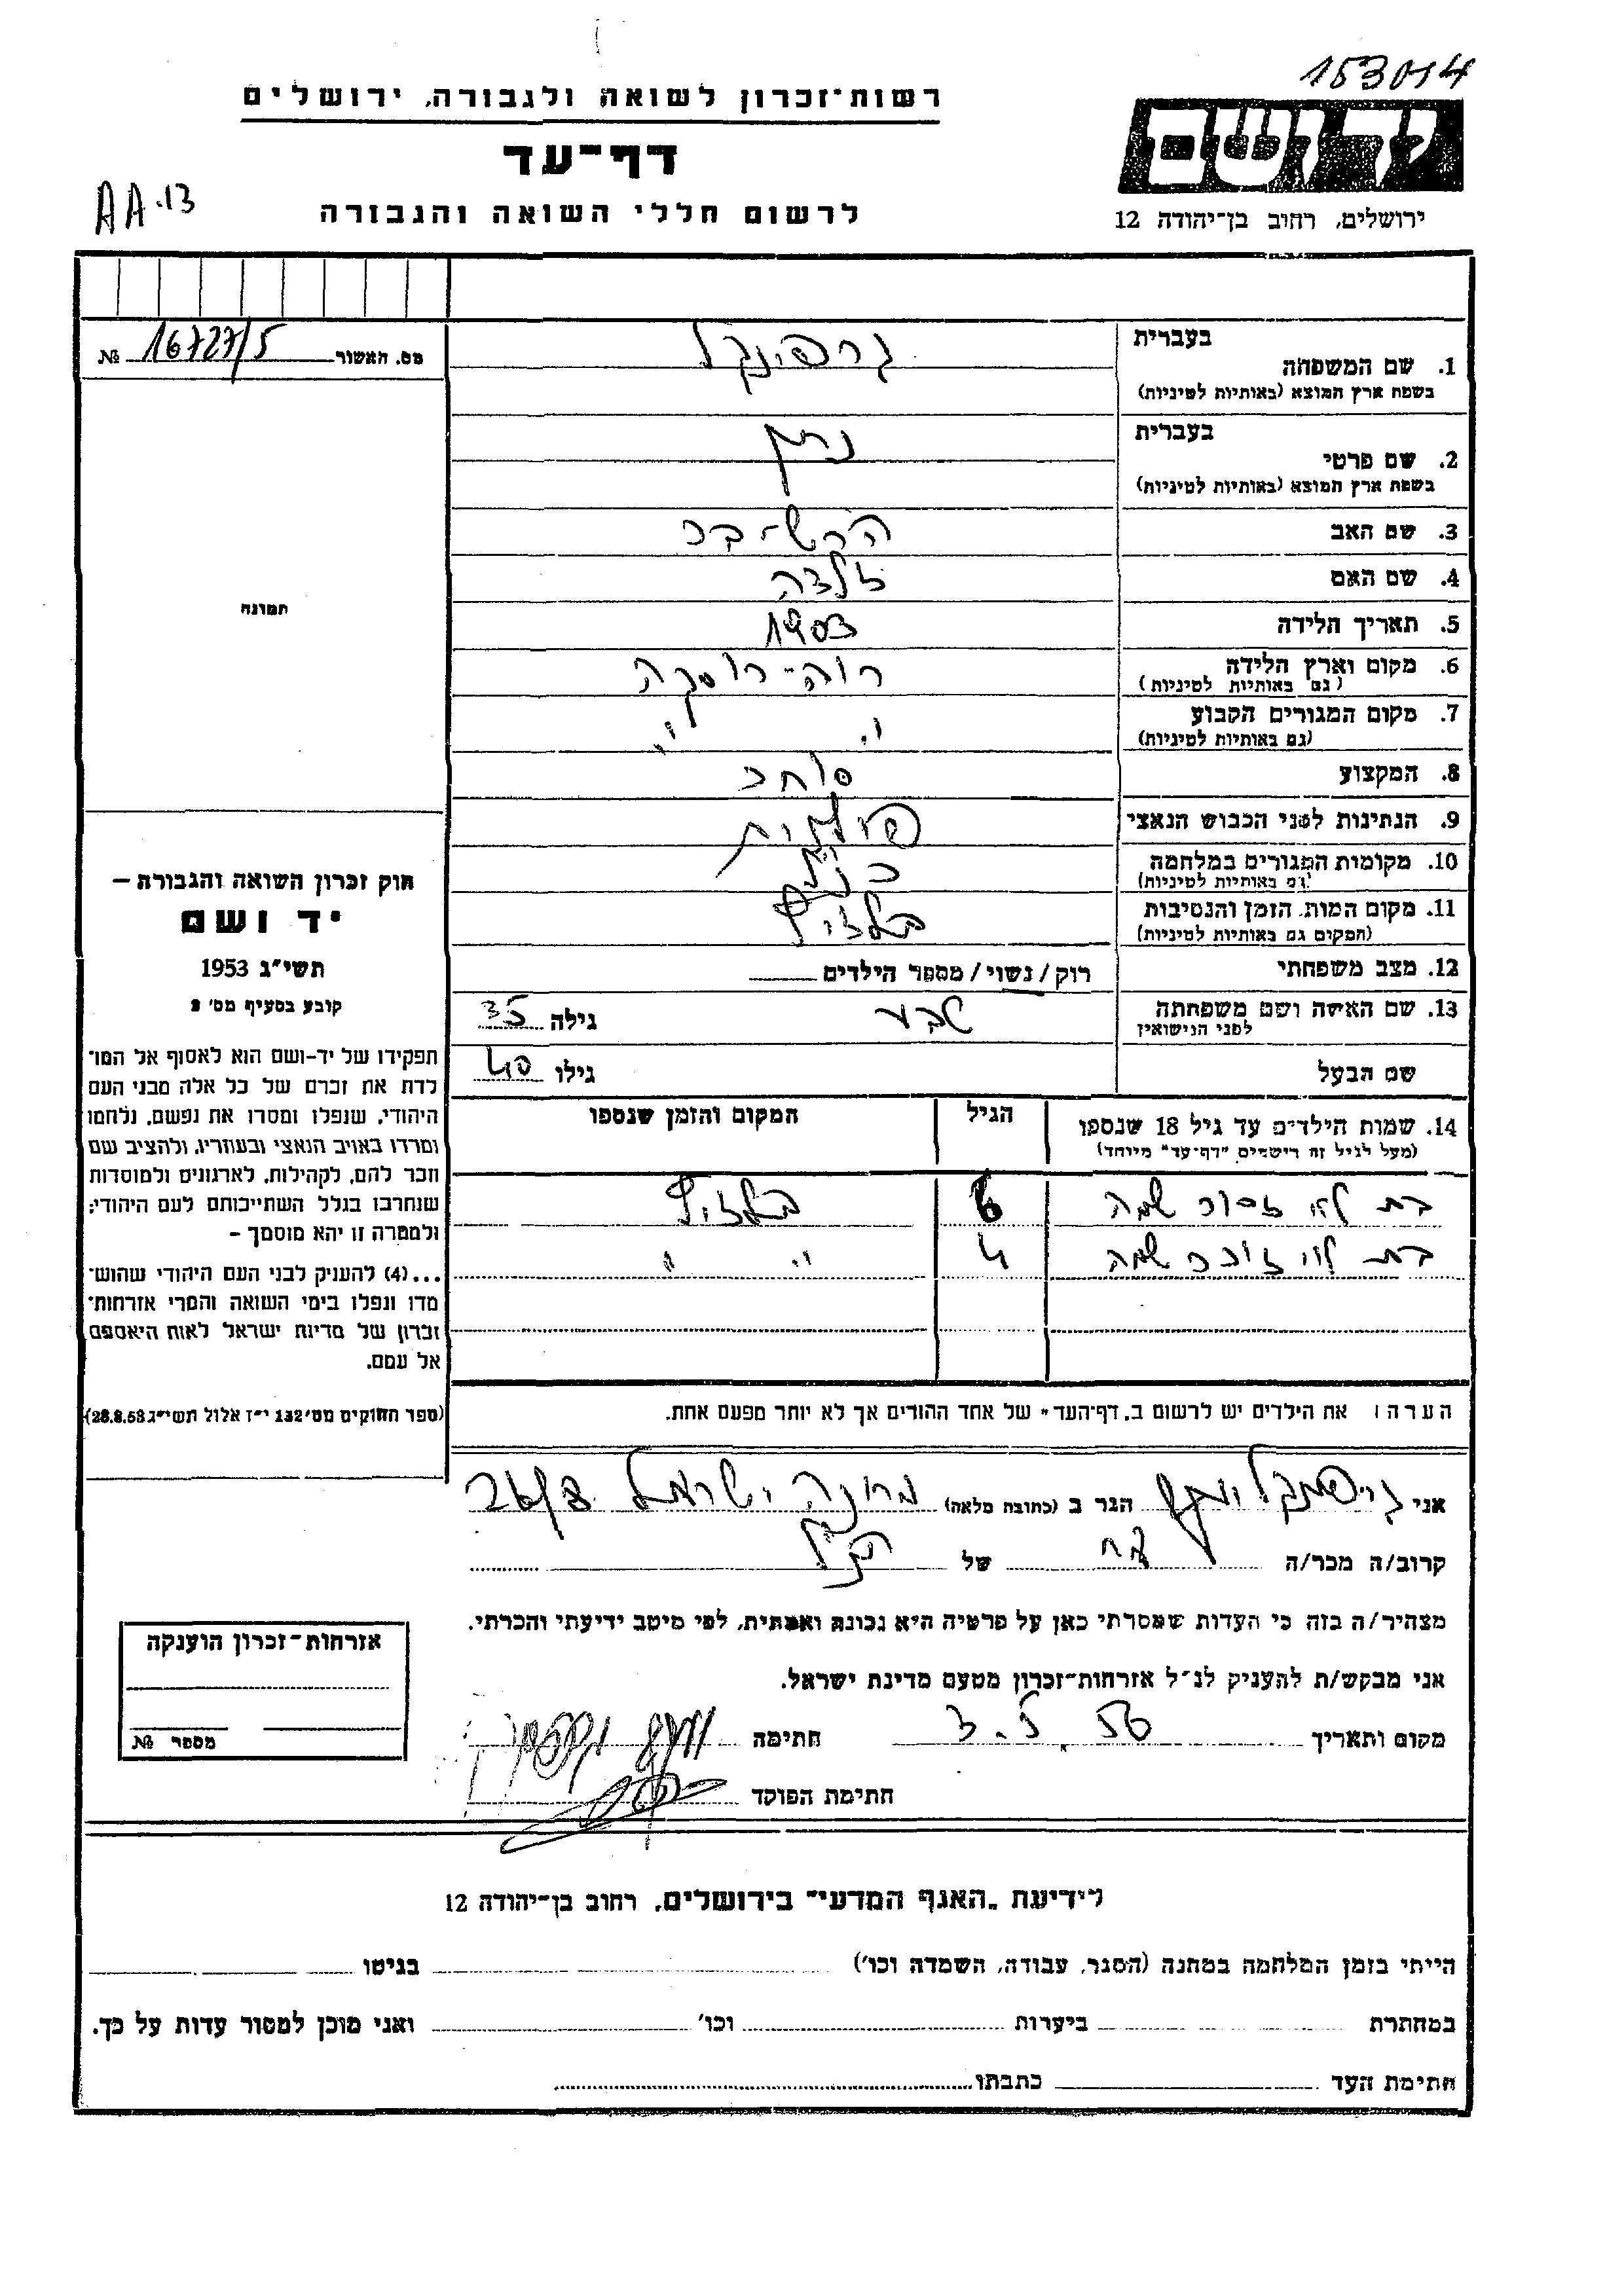 153014
רשות־זכרון לשואה ולגבורה, ירושלים
יד ושם
דף־עד
AA.13
לרשום חללי השואה והגבורה
ירושלים, רחוב בן־יהודה 12
מס. האשור 16727/5 №
בעברית
1. שם המשפחה
בשפת ארץ המוצא (באותיות לטיניות)
בעברית
2. שם פרטי נתן
בשפת ארץ המוצא (באותיות לטיניות)
3. שם האב הרש-בר
4. שם האם זלדה
5. תאריך הלידה 1903
6. מקום וארץ הלידה רוה-רוסקה
(גם באותיות לטיניות)
7. מקום המגורים הקבוע " "
(גם באותיות לטיניות)
8. המקצוע סוחר
9. הנתינות לפני הכבוש הנאצי פולנית
10. מקומות המגורים במלחמה כנ"ל
(גם באותיות לטיניות)
11. מקום המות, הזמן והנסיבות בלזיץ
(המקום גם באותיות לטיניות)
12. מצב משפחתי רוק/נשוי/מספר הילדים
13. שם האשה ושם משפחתה שבע גילה 35
לפני הנישואין
שם הבעל גילו 40
14. שמות הילדים עד גיל 18 שנספו הגיל המקום והזמן שנספו
(מעל לגיל זה רישמים "דף־עד" מיוחד)
בת לא זוכר שמה 6 בלזיץ
בת לא זוכר שמה 4 " "
הערה: את הילדים יש לרשום ב"דף־העד" של אחד ההורים אך לא יותר מפעם אחת.
תמונה
חוק זכרון השואה והגבורה –
יד ושם
תשי"ג 1953
קובע בסעיף מס' 2
תפקידו של יד-ושם הוא לאסוף אל המו־
לדת את זכרם של כל אלה מבני העם
היהודי, שנפלו ומסרו את נפשם, נלחמו
ומרדו באויב הנאצי ובעוזריו, ולהציב שם
וזכר להם, לקהילות, לארגונים ולמוסדות
שנחרבו בגלל השתייכותם לעם היהודי;
ולמטרה זו יהא מוסמך –
...(4) להעניק לבני העם היהודי שהוש־
מדו ונפלו בימי השואה והמרי אזרחות־
זכרון של מדינת ישראל לאות היאספם
אל עמם.
(ספר החוקים מס' 132 י"ז אלול תשי"ג 28.8.53)
אני הגר ב (כתובת מלאה) ישראל 26/8
קרוב/ה מכר/ה אח של הנ"ל
מצהיר/ה בזה כי העדות שמסרתי כאן על פרטיה היא נכונה ואמתית, לפי מיטב ידיעתי והכרתי.
אני מבקש/ת להעניק לנ"ל אזרחות־זכרון מטעם מדינת ישראל.
מקום ותאריך 3.5.56 חתימה
חתימת הפוקד
אזרחות־זכרון הוענקה
מספר №
לידיעת "האגף המדעי" בירושלים, רחוב בן־יהודה 12
הייתי בזמן המלחמה במחנה (הסגר, עבודה, השמדה וכו') בגיטו
במחתרת ביערות וכו' ואני מוכן למסור עדות על כך.
חתימת העד כתבתו